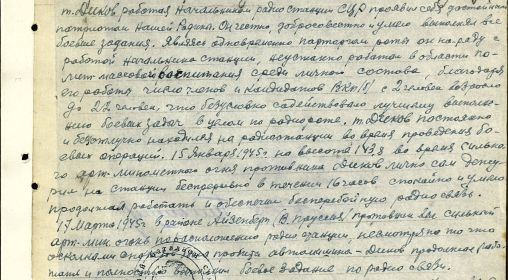 т. Дюков работая Начальником радио станции СЦР проявил себя достойным
патриотом Нашей Родины. Он честно, добросовестно и умело выполнял все
боевые задания. Являясь одновременно парторгом роты он на ряду с
работой начальника станции, неустанно работал в области по-
литмассового воспитания среди личного состава, благодаря
его работы число членов и кандидатов ВКП(б) с 2 человек возросло
до 22 человек, что безусловно содействовало лучшему выполне-
нию боевых задач в целом по радиороте. т. Дюков постоянно
и безотлучно находился на радиостанции во время проведения бо-
евых операции. 15 января 1945г. на высоте 143,8 во время сильно-
го арт-минометного огня противника Дюков лично сам дежу-
рил на станции беспрерывно в течении 16 часов спокойно и умело
продолжал работать и обеспечил бесперебойную радио связь.
17 марта 1945г. в районе Айзенберг (В. Пруссия) противник вел сильный
арт. мин. огонь по расположению радио станции, несмотря на то что
осколками снаряда пробита автомашина - Дюков продолжал рабо-
тать и полностью выполнил боевое задание по радио связи.